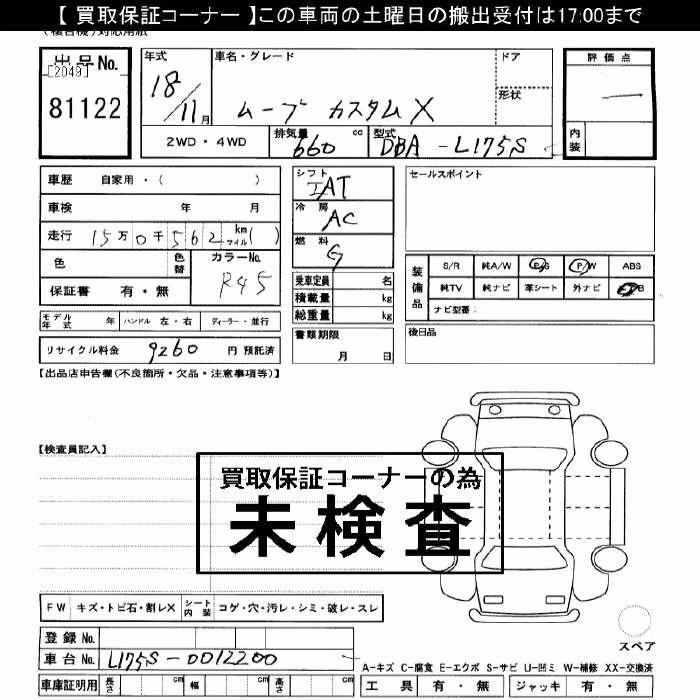 【 買取保証コーナー 】この車両の土曜日の搬出受付は17:00まで
出品No.
[2049]
81122
年式
18/11月
車名・グレード
ムーブ カスタムX
ドア
形状
評価点
内装
2WD・4WD
排気量
660 cc
型式
DBA-L175S
車歴 自家用・( )
車検 年 月
走行 15万0千562 km マイル( )
色
色替
カラーNo.
R45
保証書 有・無
シフト
IAT
冷房
AC
燃料
G
乗車定員 名
積載量 kg
総重量 kg
セールスポイント
装備品
S/R 純A/W P/S P/W ABS
純TV 純ナビ 革シート 外ナビ
ナビ型番:
モデル年式 年 ハンドル 左・右 ディーラー・並行
書類期限
月 日
後日品
リサイクル料金 9260 円 預託済
【出品店申告欄(不良箇所・欠品・注意事項等)】
【検査員記入】
買取保証コーナーの為
未検査
FW キズ・トビ石・割レX シート内装 コゲ・穴・汚レ・シミ・破レ・スレ
登録No.
車台No. L175S-0012200
スペア
A-キズ C-腐食 E-エクボ S-サビ U-凹ミ W-補修 XX-交換済
車庫証明用 長さ cm 幅 cm 高さ cm
工具 有・無 ジャッキ 有・無